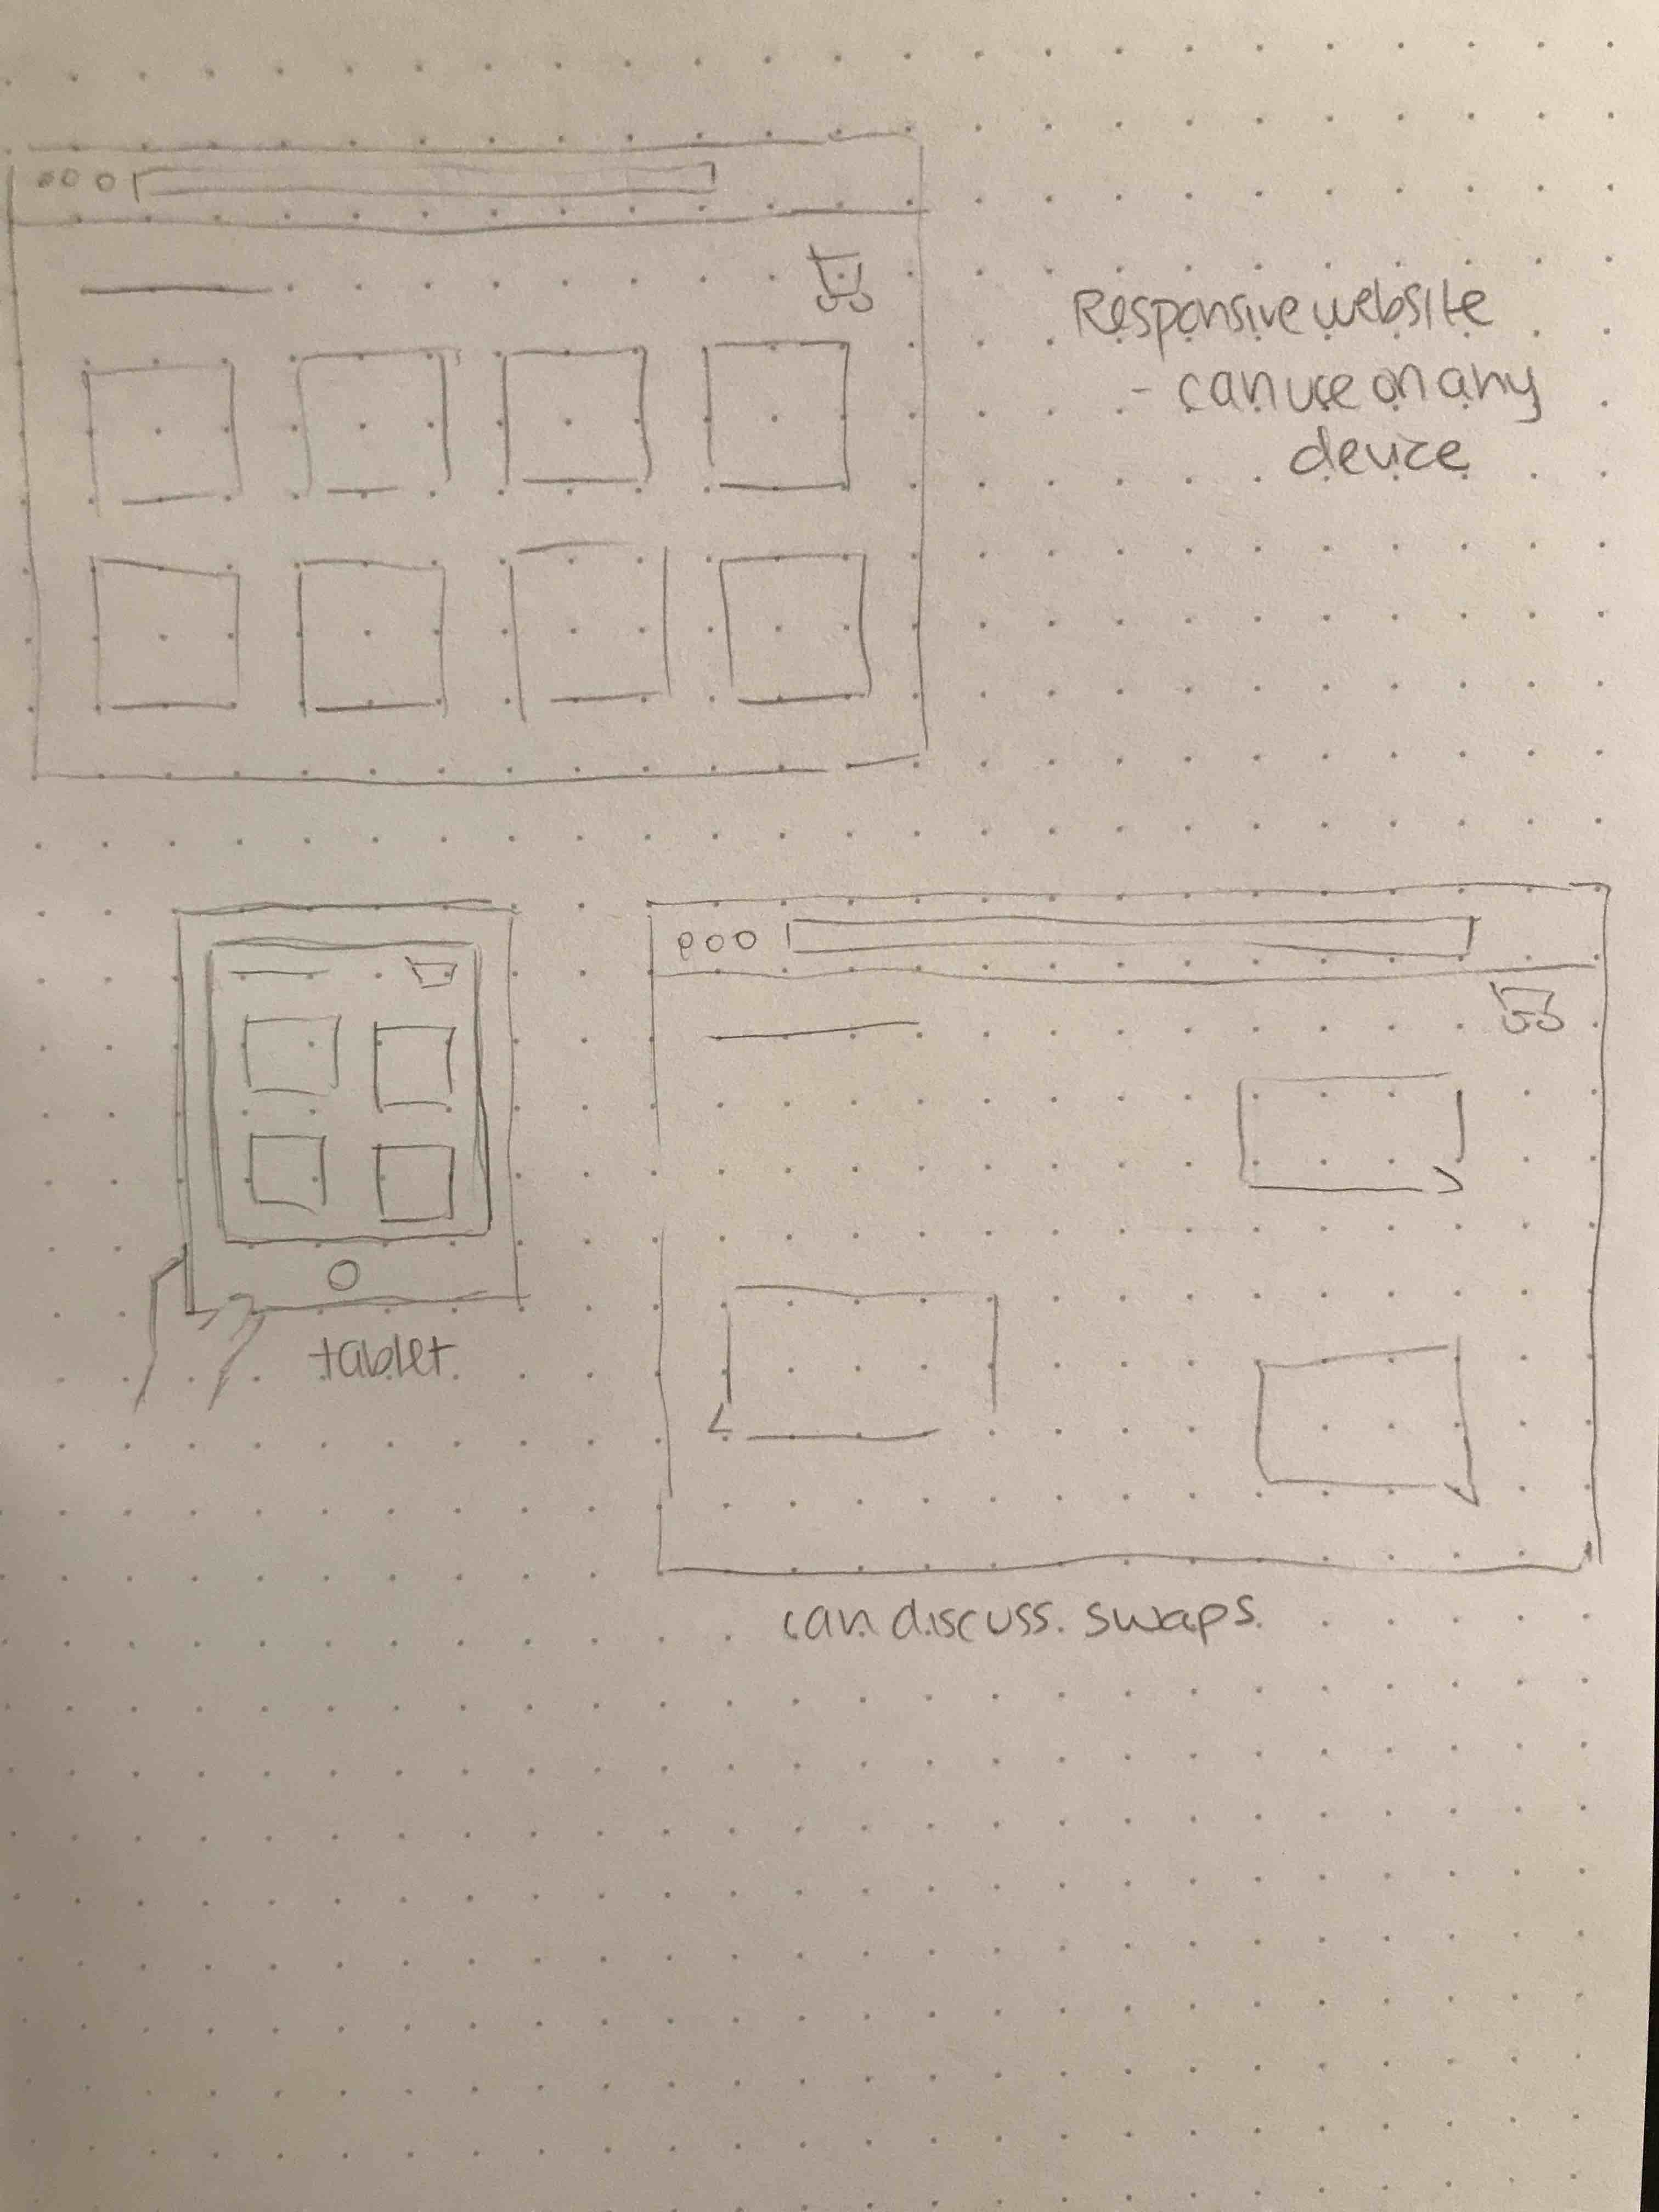 Responsive website
- can use on any
device
tablet
can discuss swaps